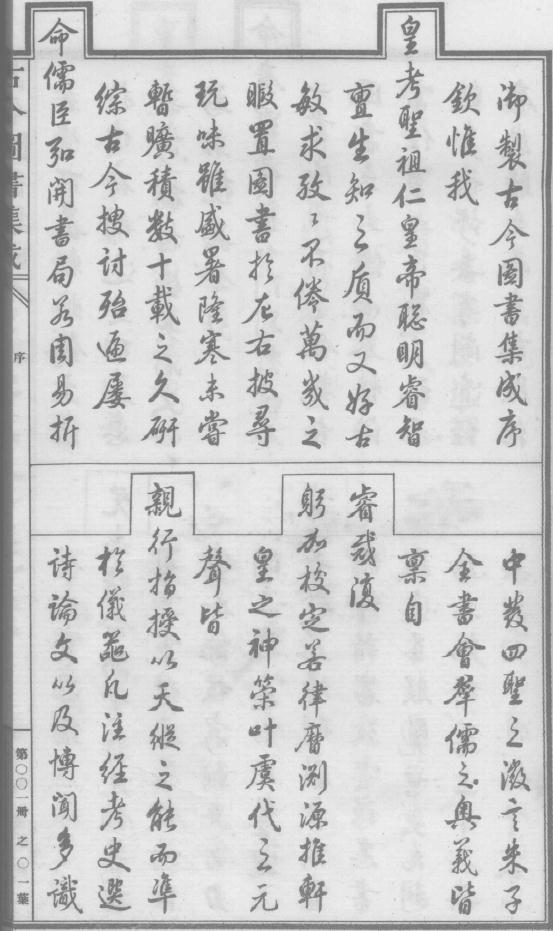 御製古今圖書集成序
欽惟我
皇考聖祖仁皇帝聰明睿智
亶生知之質而又好古
敏求孜〻不倦萬幾之
暇置圖書於左右披尋
玩味雖盛暑隆寒未嘗
暫曠積數十載之久研
綜古今搜討殆遍屢
命儒臣弘開書局若周易折
中發四聖之微言朱子
全書會羣儒之奥義皆
稟自
睿裁復
躬加校定若律曆淵源推軒
皇之神策叶虞代之元
聲皆
親行指授以天縱之能而準
於儀器凡注經考史選
詩論文以及博聞多識
古今圖書集成
序
第〇〇一冊之〇一葉